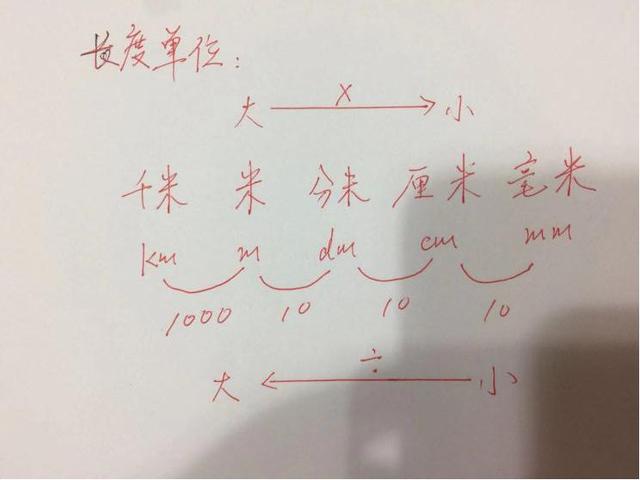 长度单位:
大 × 小
千米 米 分米 厘米 毫米
km m dm cm mm
1000 10 10 10
÷
大 小